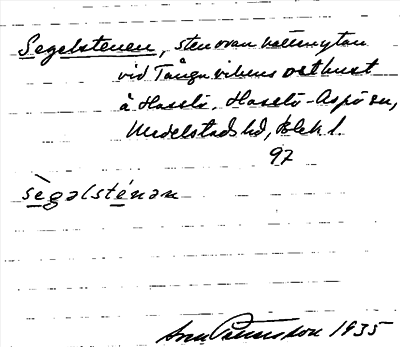 Segelstenen, sten ovan vattenytan
vid Tånga vikens ostkust
å Hasslö. Hasslö-Aspö sn,
Medelstads hd, Blek. l.
97
sègəlsténən
1935